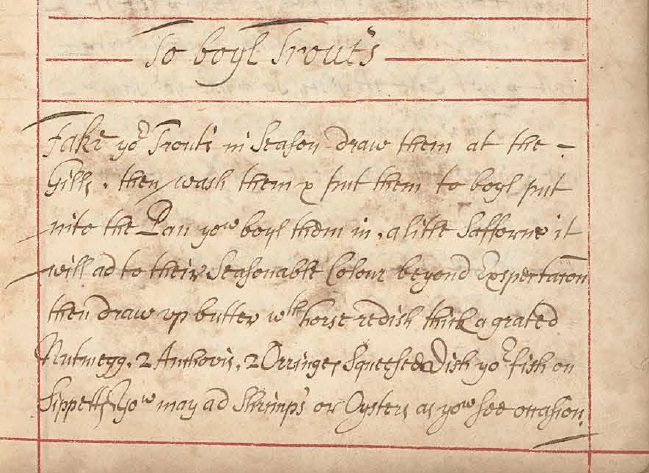 To boyl Trouts
Take yor Trouts in Season draw them at the
Gills, then wash them & put them to boyl put
into the Pan yow boyl them in, a litle Safforne it
will ad to their Seasonable Colour beyond Expertation
then draw up butter wth horse redish thick a grated
Nutmegg, 2 Anthovis, 2 Orringes Squeesed Dish yor fish on
Sippetts Yow may ad Shrimps or Oysters as yow see occasion